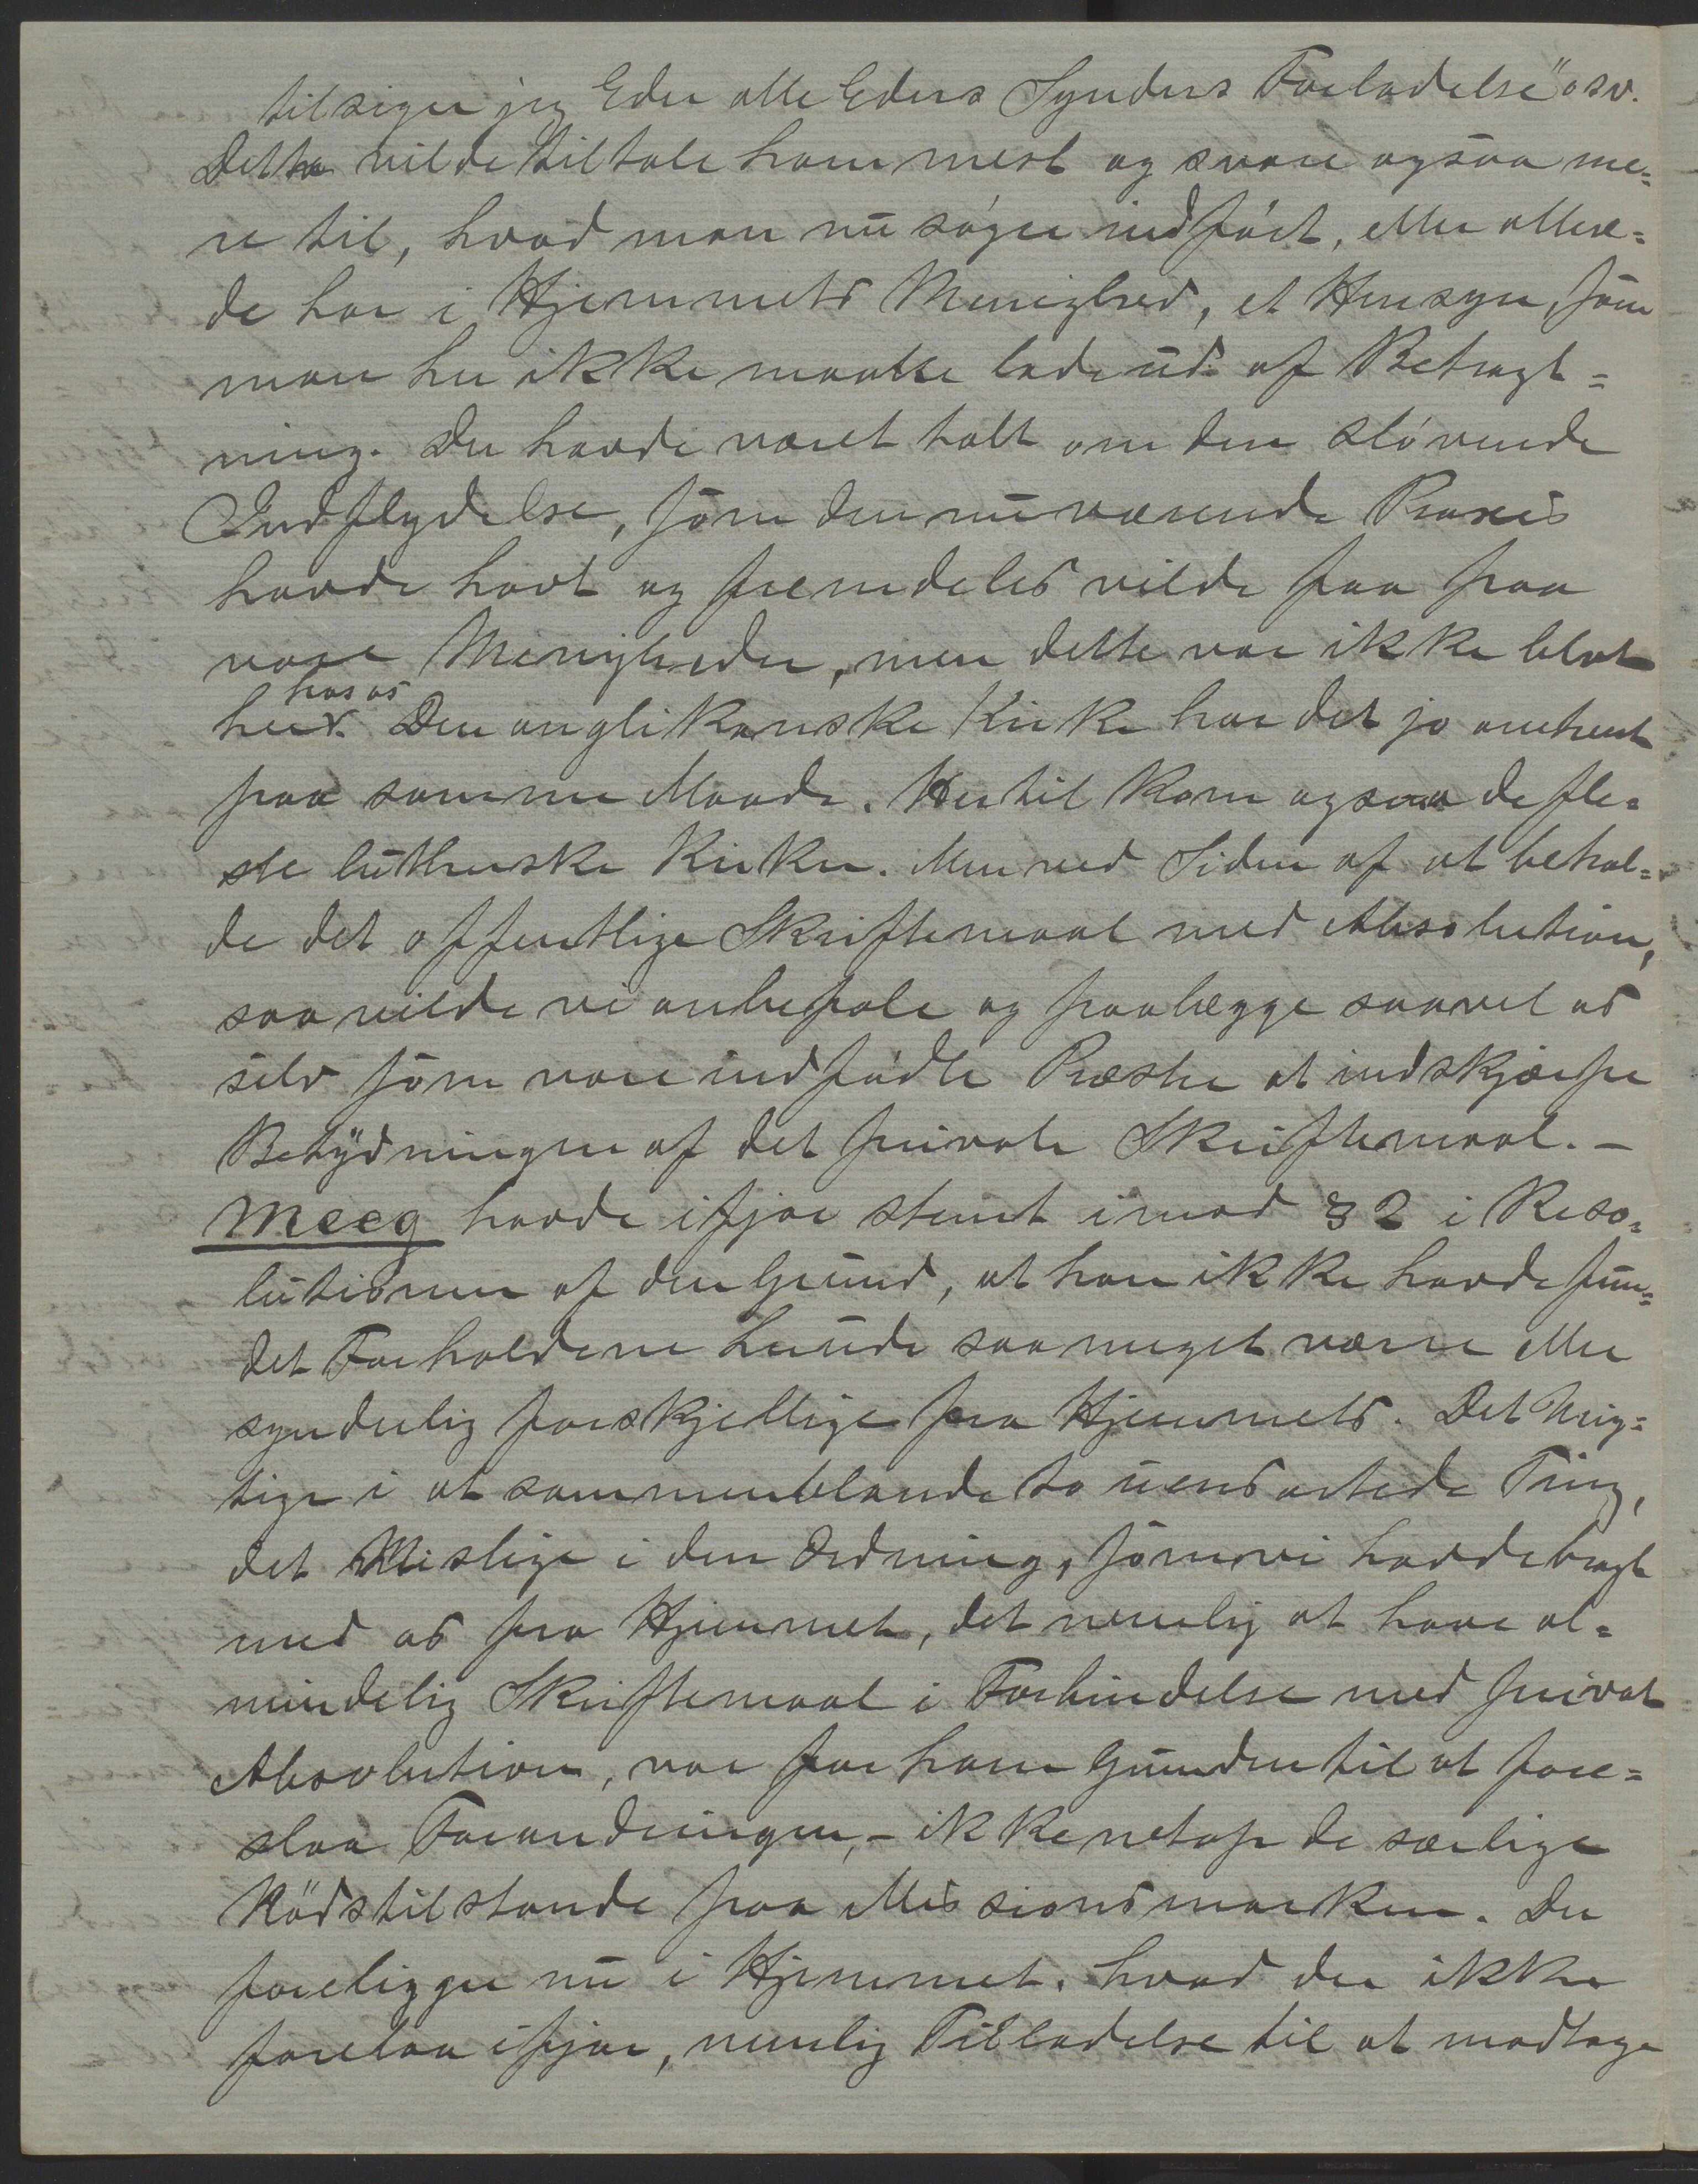 tilsiger jeg Eder alle Eders Synders Forladelse" osv.
Dette vilde tiltale ham mest og svare ogsaa me=
re til, hvad man nu søger indført, eller allere=
de har i Hjemmets Menighed, et Hensyn, som
man her ikke maatte lade ud af Betragt=
ning. Der havde været talt om den sløvende
Indflydelse, som den nuværende Praxis
havde havt og fremdeles vilde faa paa
vore Menigheder, men dette var ikke blot
hos os
her. Den anglikanske Kirke har det jo omtrent
paa samme Maade. Hertil kom ogsaa de fle=
ste lutherske Kirker. Men ved Siden af at behol=
de det offentlige Skriftemaal med Absolution,
saa vilde vi anbefale og paalægge saavel os
selv som vore indfødte Præster at indskjærpe
Betydningen af det private Skriftemaal. –
Meeg havde ifjor stemt imod § 2 i Reso=
lutionen af den Grund, at han ikke havde fun=
det Forholdene herude saa meget værre eller
synderlig forskjellige fra Hjemmets. Det Urig=
tige i at sammenblande to uensartede Ting,
det Mislige i den Ordning, som vi havde bragt
med os fra Hjemmet, det nemlig at have al=
mindelig Skriftemaal i Forbindelse med privat
Absolution, var for ham Grunden til at fore=
slaa Forandringen, – ikke netop de særlige
Nødstilstande paa Missionsmarken. Der
foreligger nu i Hjemmet, hvad der ikke
forelaa ifjor, nemlig Tilladelse til at modtage